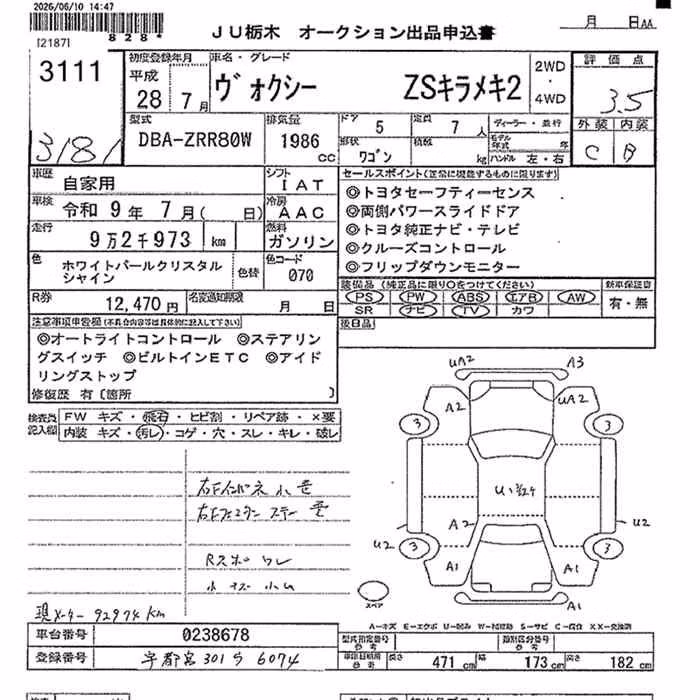 2026/06/10 14:47
[2187]
8 2 8 *
JU栃木 オークション出品申込書
月 日AA
3111
3181
初度登録年月
平成
28 年 7 月
車名・グレード
ヴォクシー ZSキラメキ2
2WD
・
4WD
評価点
3.5
外装 内装
C B
型式
DBA-ZRR80W
排気量
1986
cc
ドア 5
定員 7 人
形状 ワゴン
積載 kg
ディーラー・並行
モデル年式 年
ハンドル 左・右
車歴 自家用
シフト IAT
車検 令和 9 年 7 月( 日)
冷房 AAC
走行 9万2千973 km
燃料 ガソリン
色 ホワイトパールクリスタルシャイン
色替
色コード 070
R券 12,470 円
名変通知期限 月 日
セールスポイント(正常に機能するものに限ります)
◎トヨタセーフティーセンス
◎両側パワースライドドア
◎トヨタ純正ナビ・テレビ
◎クルーズコントロール
◎フリップダウンモニター
装備品(純正品に限り○をつけてください)
新車保証書
PS PW ABS エアB AW
SR ナビ TV カワ
有・無
後日品
注意事項申告欄(不具合内容等は具体的に記入して下さい)
◎オートライトコントロール ◎ステアリン
グスイッチ ◎ビルトインETC ◎アイド
リングストップ
修復歴 有〔箇所 〕
検査員記入欄
FW キズ・飛石・ヒビ割・リペア跡・×要
内装 キズ・汚レ・コゲ・穴・スレ・キレ・破レ
Rスポ ワレ
現メーター 92974 km
UA2 A3
A2 UA2
3 3
A2
U2 U2
3 3
A1 A1
A1
スペア
A-キズ E-エクボ U-凹み W-補修跡 S-サビ C-腐食 XX-交換済
車台番号 0238678
登録番号 宇都宮 301 ら 6074
型式指定番号 参考
類別区分番号 参考
長さ 471 cm 幅 173 cm 高さ 182 cm